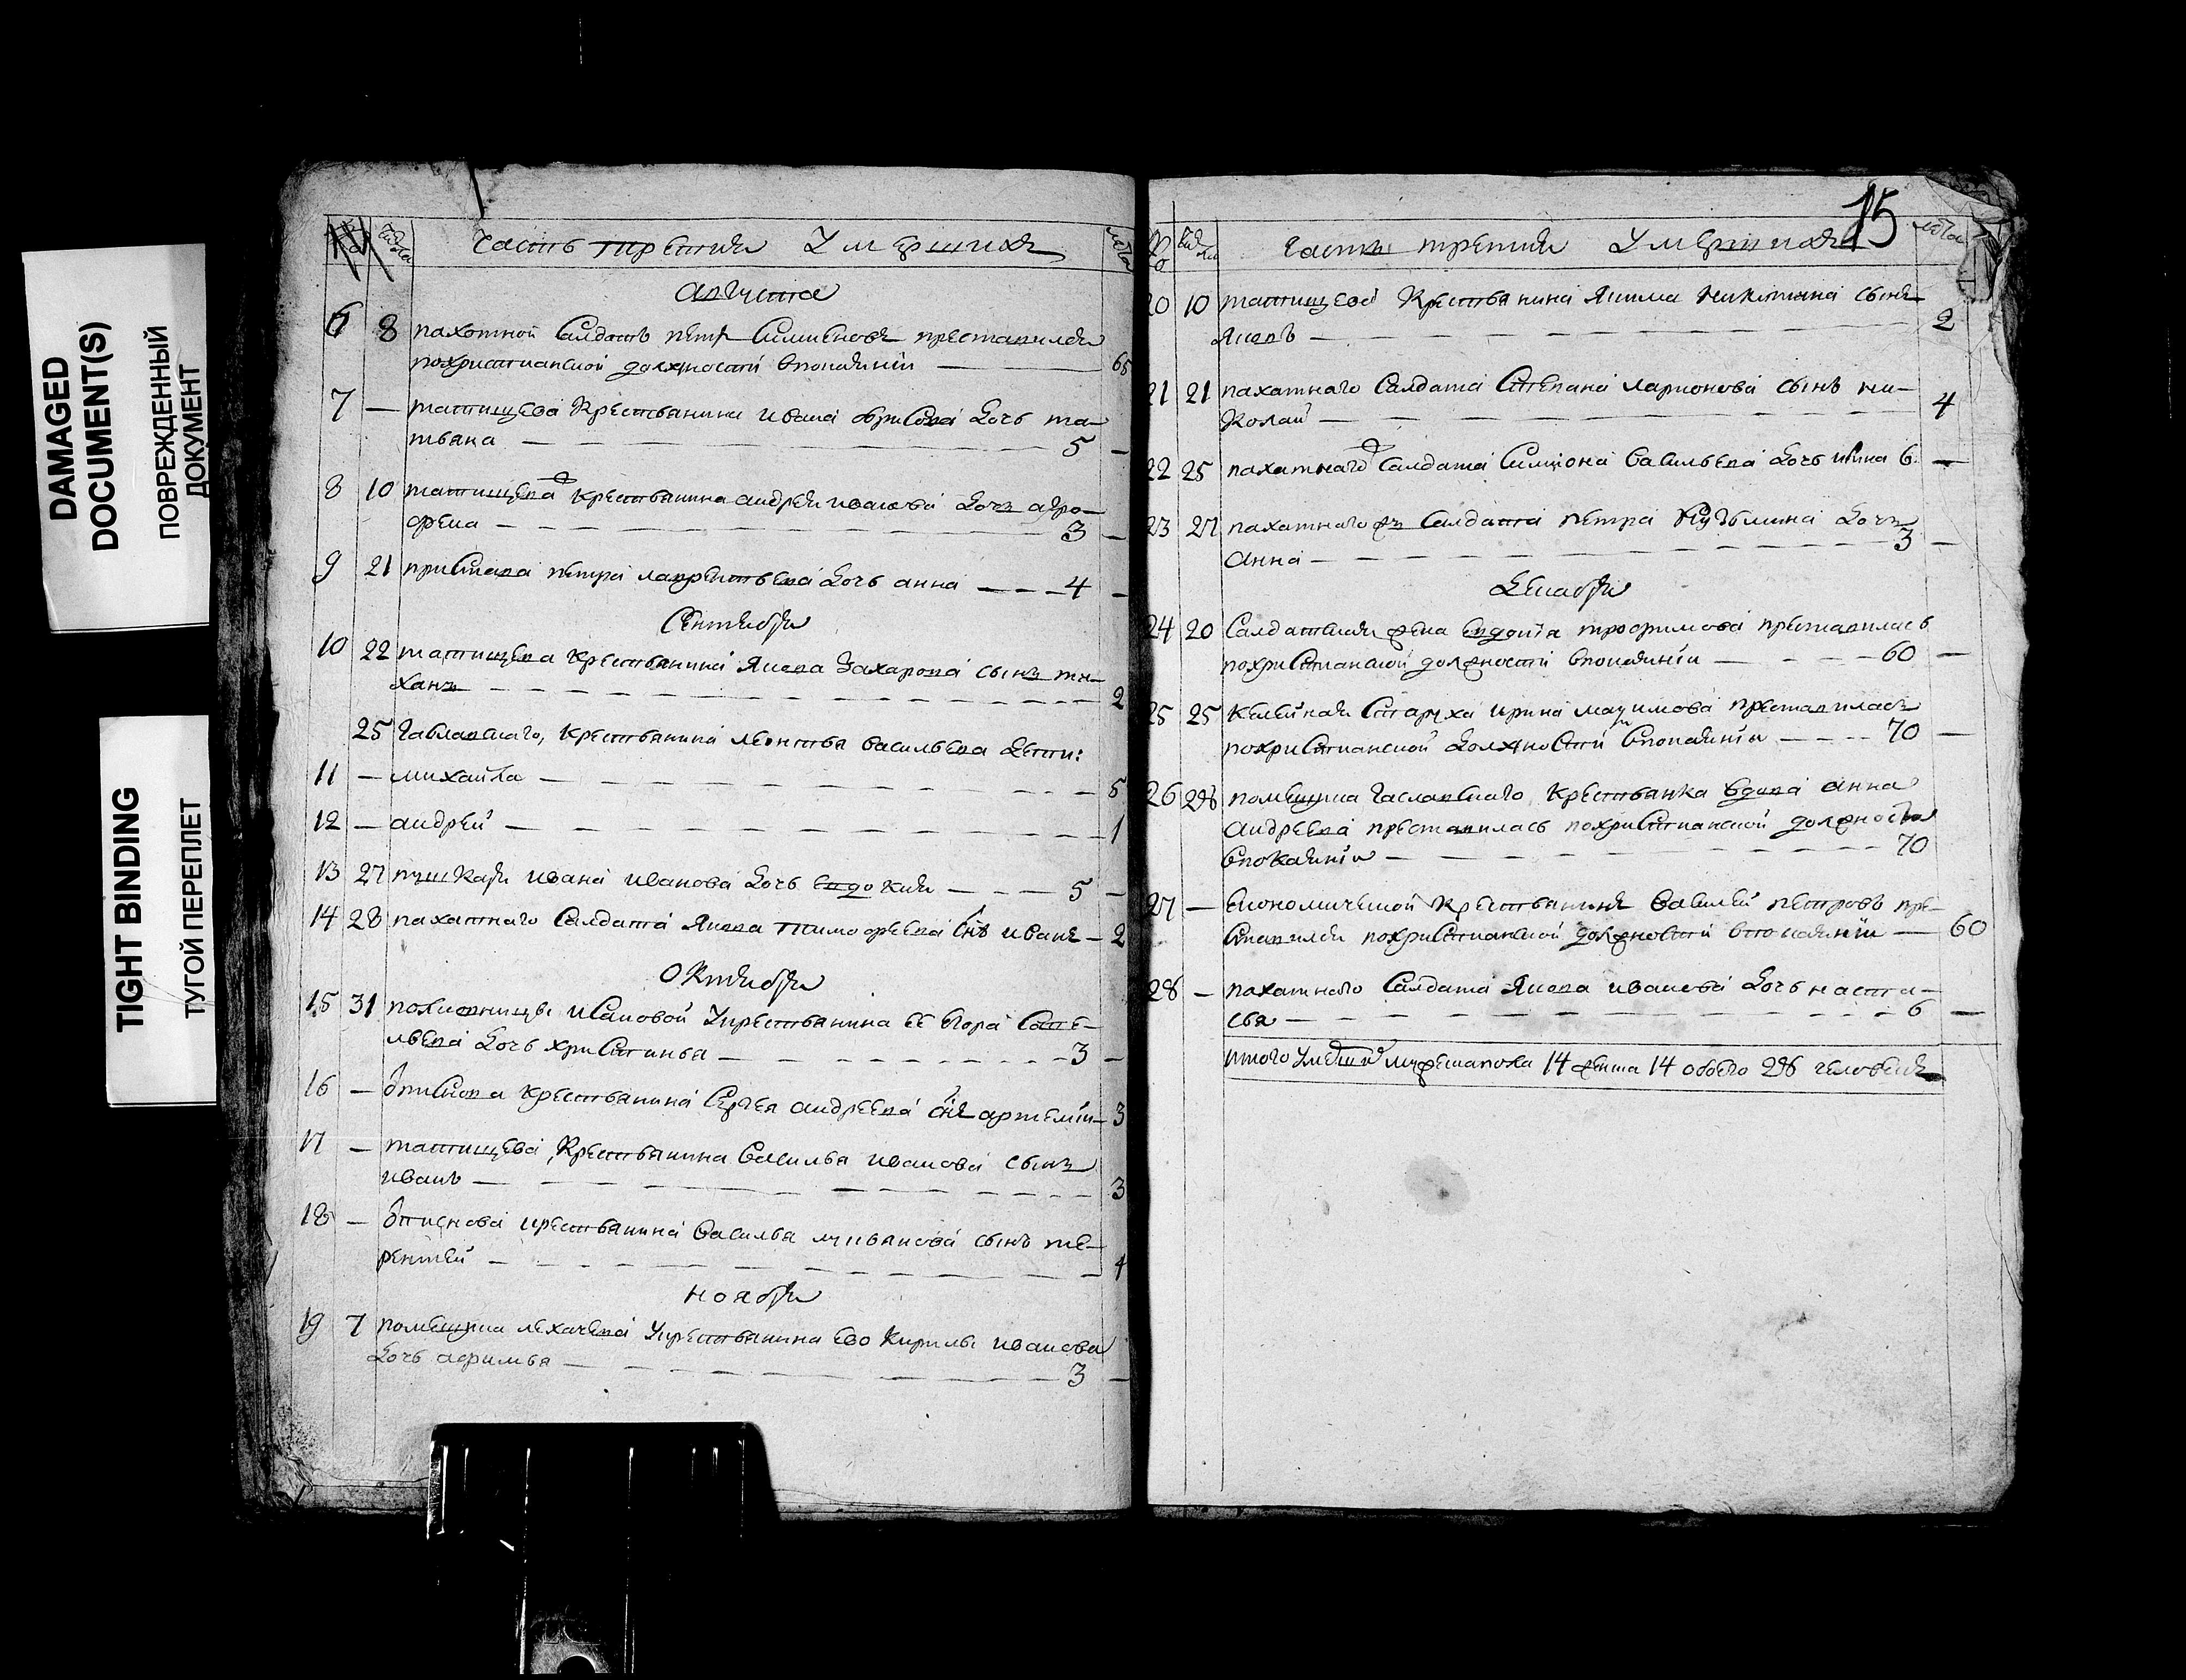 DAMAGED
DOCUMENT(S)
ПОВРЕЖДЕННЫЙ
ДОКУМЕНТ
TIGHT BINDING
ТУГОЙ ПЕРЕПЛЕТ
Часть третия Умершихъ лѣта
Августа
6 8 пахотной Салдатъ петръ Симионовъ преставился
похристианской должности впокаянiи — 65
7 — татищева Крестьянина ивана борисова дочь та-
тьяна — 5 —
8 10 татищева крестьянина андрея иванова дочъ афро-
фена — 3 —
9 21 пристава петра лаврентьева дочь анна — 4 —
Сентября
10 22 татищева крестьянина Якова Захарова сынъ ти-
ханъ — 2
25 крестьянина леонтья васильева дети:
11 — михаила — 5
12 — андрей — 1
13 27 пушкаря ивана иванова дочь евдокия — 5 —
14 28 пахатнаго Салдата Якова тимофеева снъ иванъ — 2
Октября
15 31 исаковой Укрестьянина ее Егора Саве-
льева дочь христинья — 3 —
16 — крестьянина Сергея андреева снъ артемiи — 3
17 — татищева, Крестьянина Василья иванова сынъ
иванъ — 3
18 — крестьянина василья иванова сынъ те-
рентей — 1
ноября
19 7 помещика лехачева Укрестьянина Ево Кирилы иванова
дочь афимья — 3 —
15
Часть третия Умершихъ лѣта
20 10 татищева Крестьянина Якима Никитина сынъ
Яковъ — 2
21 21 пахатнаго Салдата Степана ларионова сынъ ни-
колай — 4
22 25 пахатнаго Салдата Симиона васильева дочь 6 —
23 27 пахатнаго Салдата петра Кузьмина дочъ
Анна — 3 —
Декабря
24 20 Салдатская жена Евдотья трофимова преставилась
похристианской должности впокаянiи — 60 —
25 25 Келейная Старуха ирина маѯимова преставилась
похристианской должности впокаянiи — 70 —
26 28 помещика крестьянка вдова анна
андреева преставилась похристианской должности
впокаянiи — 70
27 — Економической Крестьянинъ василей петровъ пре-
ставился похристианской должности впокаянiи — 60
28 — пахатнаго Салдата Якова иванова дочь наста-
сья — 6 —
итого умерших мужеска пола 14 женска 14 обоего 28 человекъ